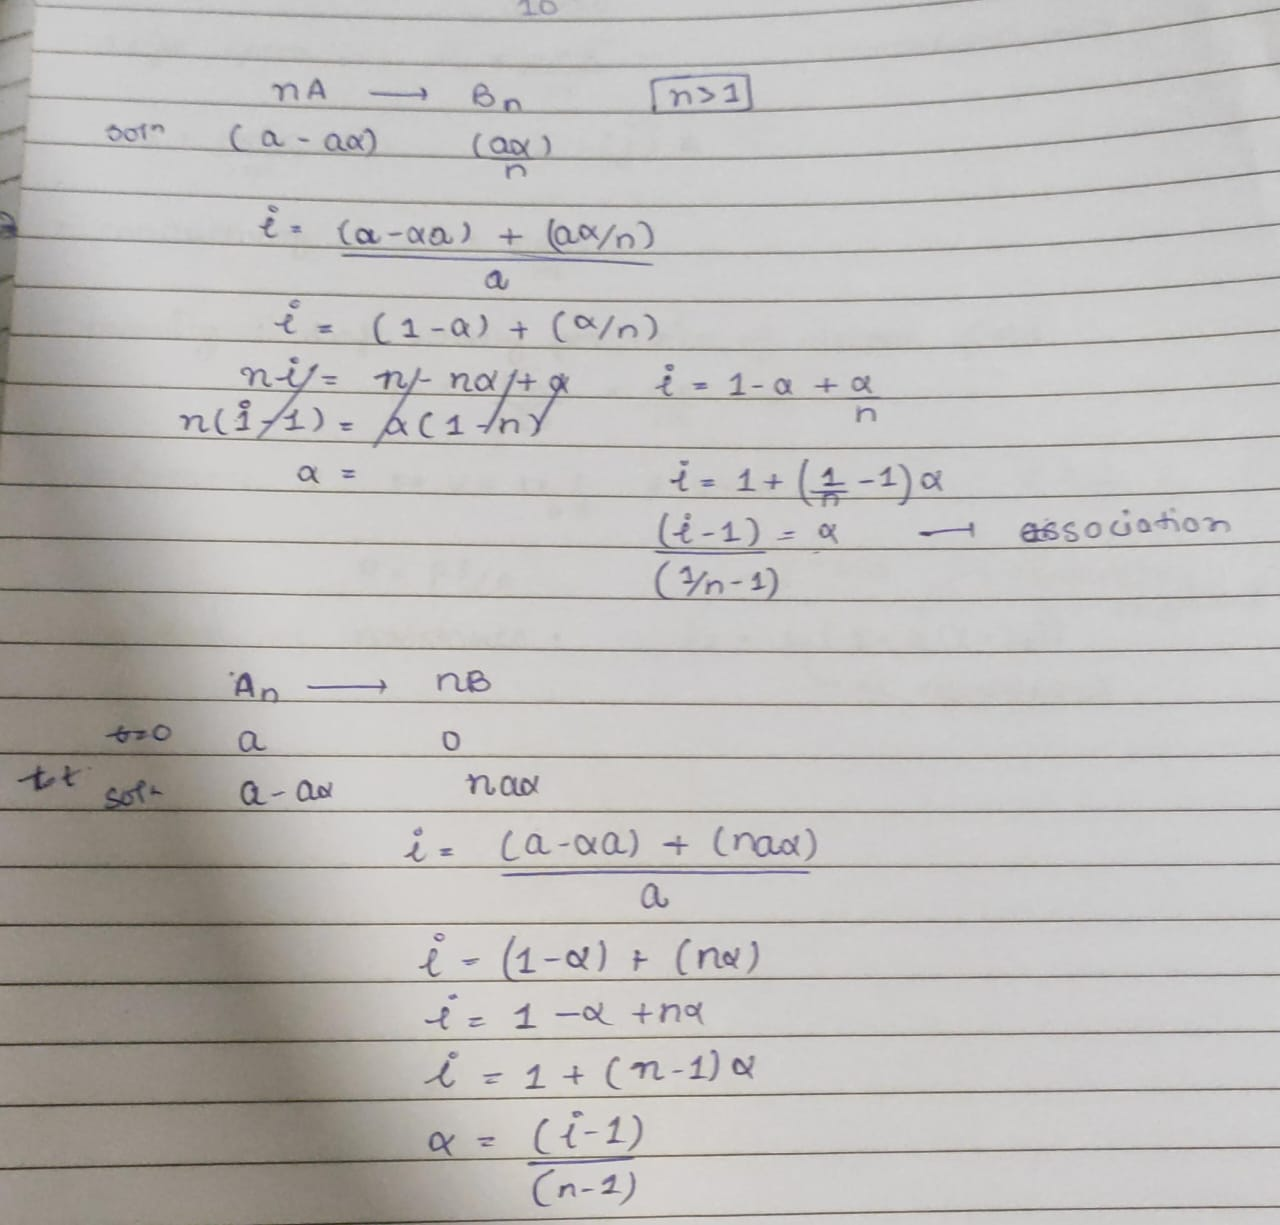 10
nA → Bn n>1
solⁿ (a - aα) (aα)/n
i = (a-αa) + (aα/n) / a
i = (1-α) + (α/n)
ni = n - nα + α i = 1-α + α/n
n(i-1) = α(1-n)
α = i = 1 + (1/n - 1)α
(i-1)/(1/n-1) = α → association
An → nB
t=0 a 0
tt solⁿ a-aα naα
i = (a-αa) + (naα) / a
i = (1-α) + (nα)
i = 1-α+nα
i = 1 + (n-1)α
α = (i-1)/(n-1)